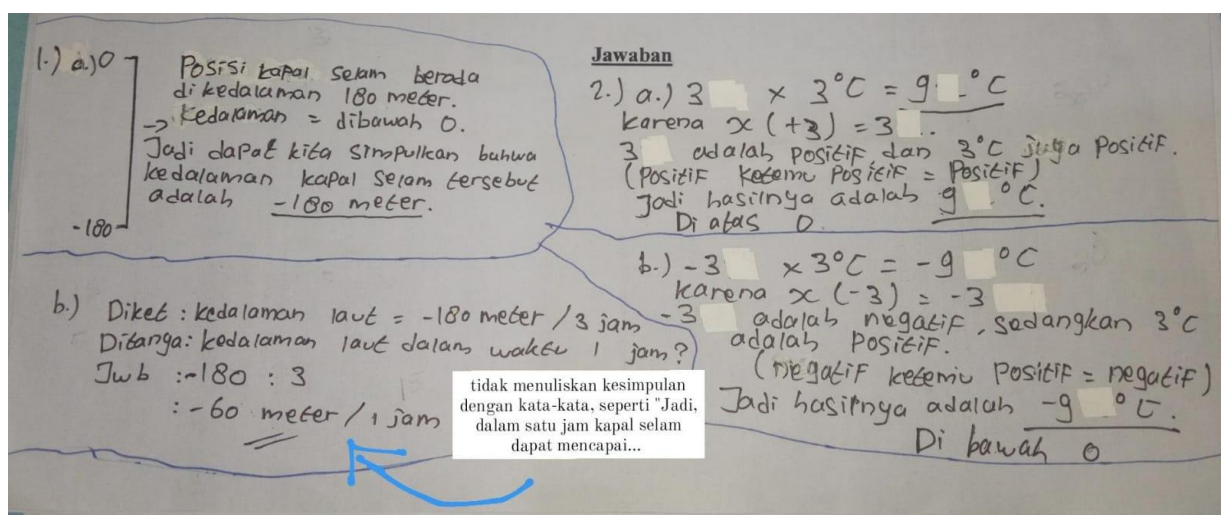 1.) a.) 0
Posisi kapal selam berada
di kedalaman 180 meter.
→ Kedalaman = dibawah 0.
Jadi dapat kita simpulkan bahwa
kedalaman kapal selam tersebut
adalah -180 meter.
-180
b.) Diket : kedalaman laut = -180 meter / 3 jam
Ditanga: kedalaman laut dalam waktu 1 jam?
Jwb : -180 : 3
: -60 meter / 1 jam
tidak menuliskan kesimpulan
dengan kata-kata, seperti "Jadi,
dalam satu jam kapal selam
dapat mencapai...
Jawaban
2.) a.) 3 × 3°C = 9 °C
karena x (+3) = 3 ..
3 adalah positif dan 3°C juga positif.
(Positif ketemu Positif = Positif)
Jadi hasilnya adalah 9 °C.
Di atas 0.
b.) -3 × 3°C = -9 °C
karena x (-3) = -3
-3 adalah negatif, sedangkan 3°C
adalah positif.
(negatif ketemu positif = negatif)
Jadi hasilnya adalah -9 °C.
Di bawah 0